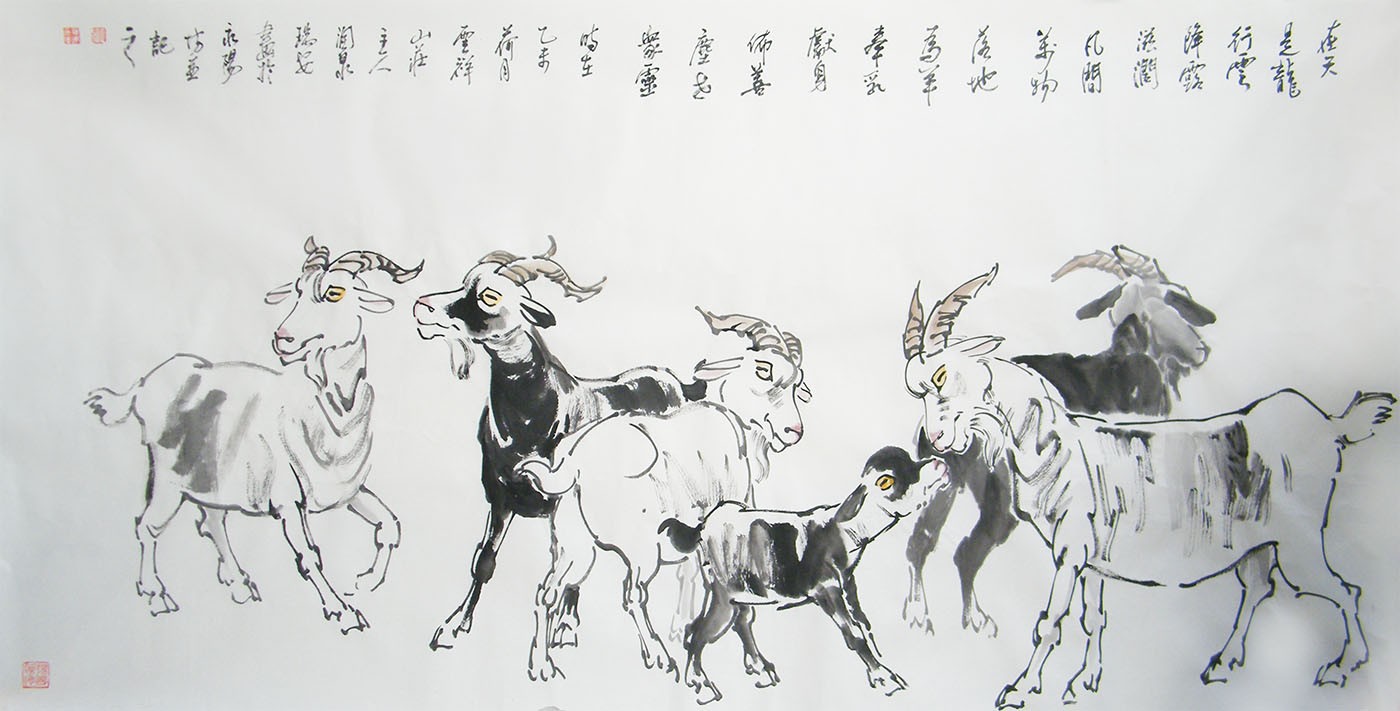 在天
是龍
行雲
降露
滋潤
凡間
萬物
落地
為羊
奉乳
獻身
佈善
塵世
衆靈
時在
乙未
荷月
雲祥
山莊
主人
潤泉
瑞安
畫於
永陽
坊並
記
之